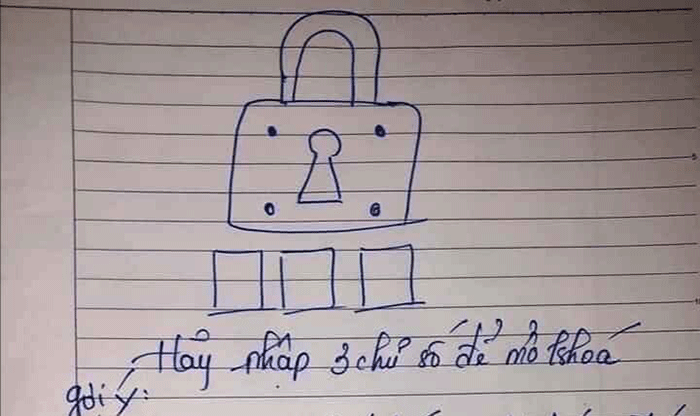 Hãy nhập 3 chữ số để mở khoá
gợi ý: